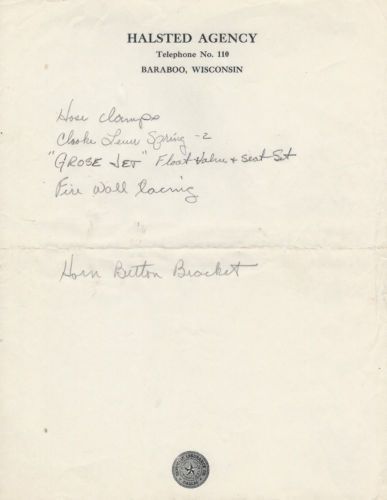 HALSTED AGENCY
Telephone No. 110
BARABOO, WISCONSIN
Hose Clamps
Choke Lever Spring - 2
"GROSE JET" Float Valve + Seat Set
Fire Wall Lacing
Horn Button Bracket